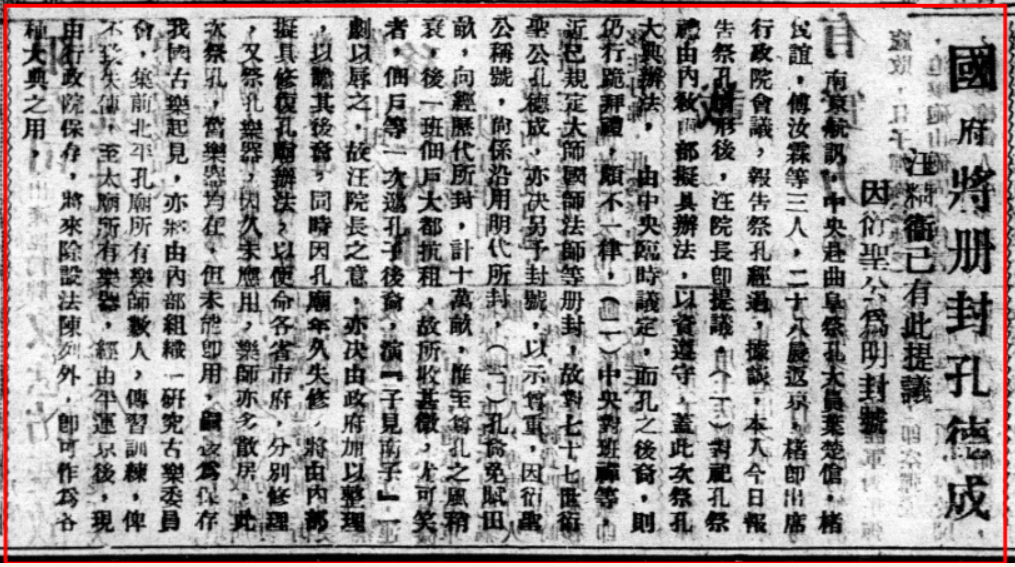 國府將册封孔德成
汪精衛已有此提議
因衍聖公爲明封號
南京航訊，中央赴曲阜祭孔大員葉楚傖，褚
民誼，傅汝霖等三人，二十八晨返京，褚卽出席
行政院會議，報告祭孔經過，據談，本人今日報
告祭孔情形後，汪院長卽提議，（一）對祀孔祭
禮由內敎兩部擬具辦法，以資遵守，蓋此次祭孔
大典辦法，由中央臨時議定，而孔之後裔，則
仍行跪拜禮，頗不一律，（二）中央對班禪等，
近已規定大師國師法師等册封，故對七十七世衍
聖公孔德成，亦决另予封號，以示尊重，因衍聖
公稱號，尙係沿用明代所封，（三）孔裔免賦田
畝，向經歷代所封，計十萬畝，惟至尊孔之風稍
衰，後一班佃戶大都抗租，故所收甚微，尤可笑
者，佃戶等一次遞孔子後裔，演『子見南子』一
劇以辱之，故汪院長之意，亦决由政府加以整理
，以贍其後裔，同時因孔廟年久失修，將由內部
擬具修復孔廟辦法，以便命各省市府，分別修理
，又祭孔樂器，因久未應用，樂師亦多散居，此
次祭孔，舊樂器均在，但未能卽用，嗣後爲保存
我國古樂起見，亦將由內部組織一硏究古樂委員
會，集前北平孔廟所有樂師數人，傳習訓練，俾
不致失傳，至太廟所有樂器，經由平運京後，現
由行政院保存，將來除設法陳列外，卽可作爲各
種大典之用，